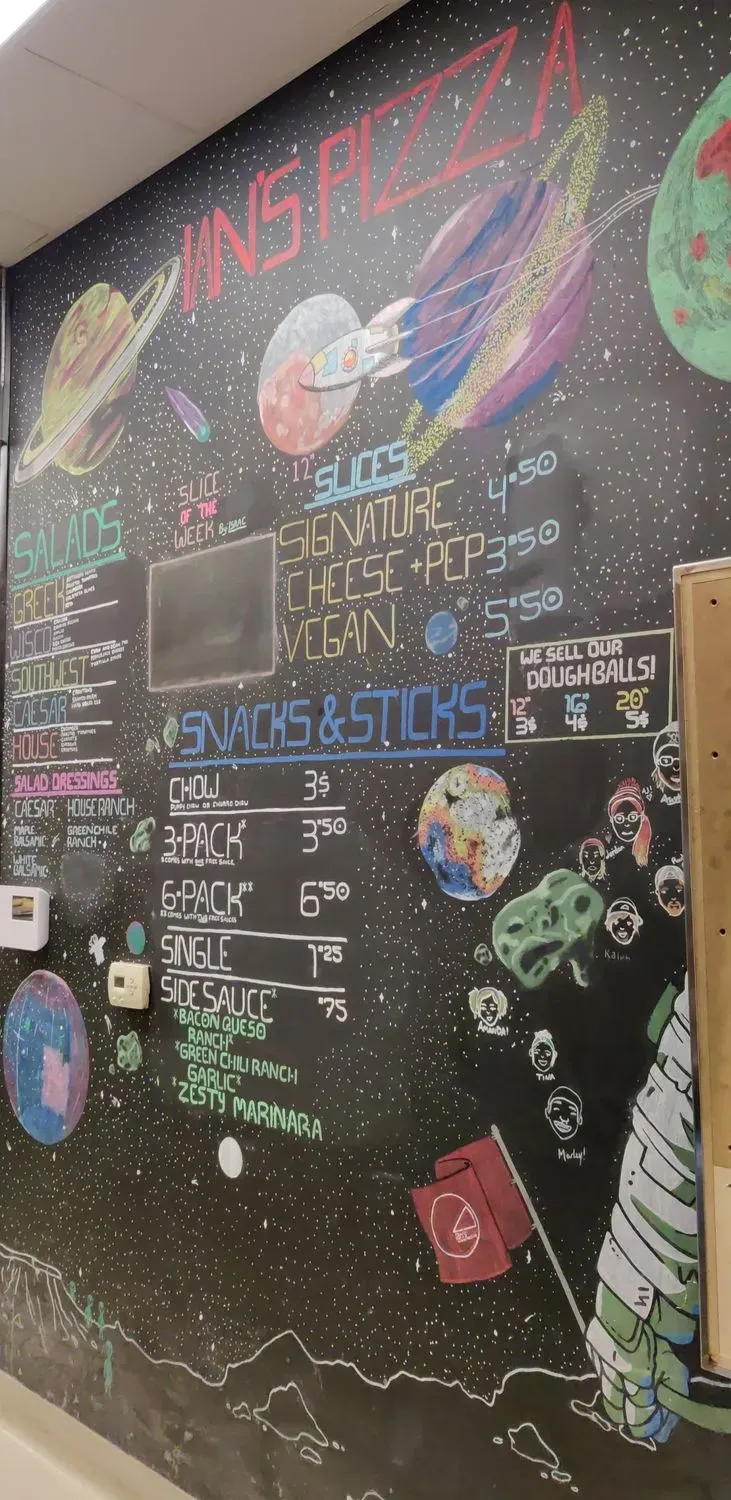 IAN'S PIZZA
SALADS
GREEK
WISCO
SOUTHWEST
CAESAR
HOUSE
SALAD DRESSINGS
CAESAR HOUSE RANCH
MAPLE BALSAMIC
GREEN CHILE RANCH
WHITE BALSAMIC
SLICE
OF THE
WEEK By ISAAC
12" SLICES
SIGNATURE 4.50
CHEESE + PEP 3.50
VEGAN 5.50
WE SELL OUR
DOUGHBALLS!
12" 16" 20"
3$ 4$ 5$
SNACKS & STICKS
CHOW 3$
PUPPY CHOW OR CHURRO CHOW
3-PACK* 3.50
COMES WITH ONE FREE SAUCE
6-PACK** 6.50
COMES WITH TWO FREE SAUCES
SINGLE 1.25
SIDE SAUCE* .75
*BACON QUESO
RANCH*
*GREEN CHILI RANCH
GARLIC*
*ZESTY MARINARA
AMANDA!
TINA
Marley!